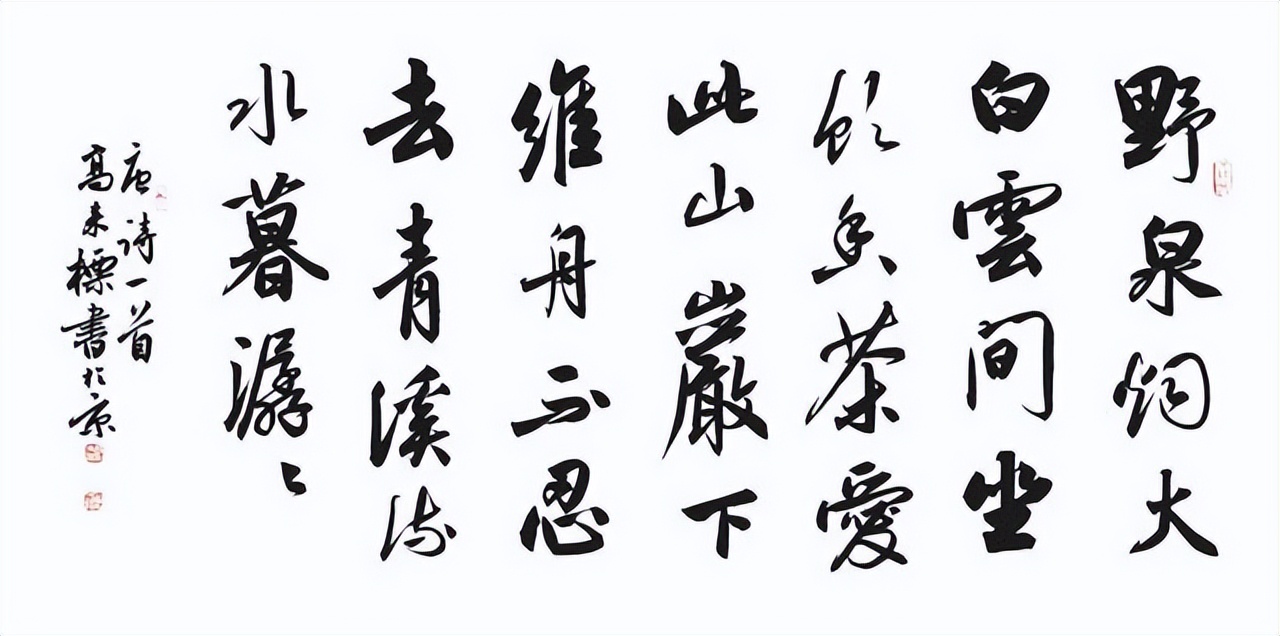 野泉烟火
白雲間坐
飲香茶愛
此山巖下
維舟不忍
去青溪流
水暮潺々
唐詩一首
高来標書於京